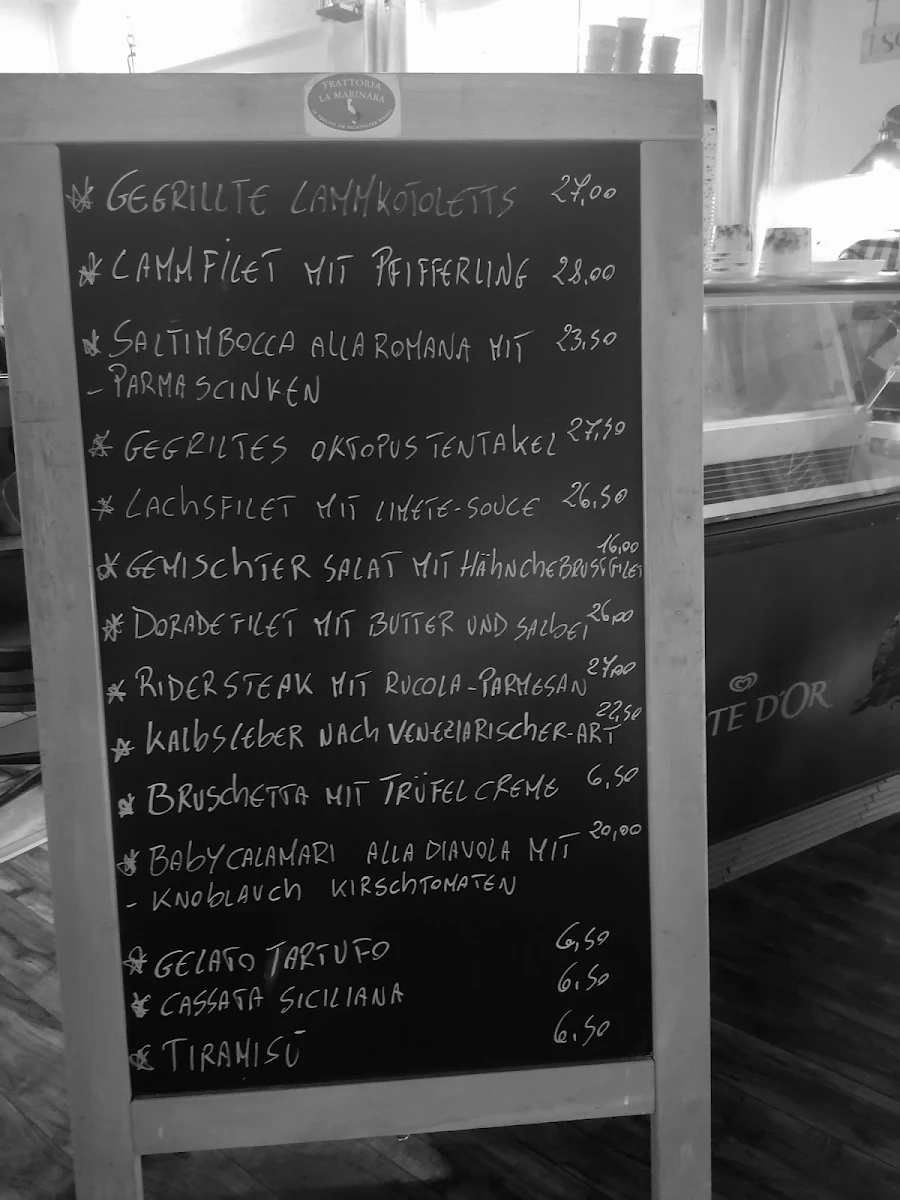 TRATTORIA
LA MARINARA
GEGRILLTE LAMMKOTOLETTS 27,00
LAMMFILET MIT PFIFFERLING 28,00
SALTIMBOCCA ALLA ROMANA MIT 23,50
- PARMASCINKEN
GEGRILTES OKTOPUS TENTAKEL 27,50
LACHSFILET MIT LIMETE-SOUCE 26,50
GEMISCHTER SALAT MIT HÄHNCHEBRUSTFILET 16,00
DORADEFILET MIT BUTTER UND SALBEI 26,00
RIDERSTEAK MIT RUCOLA-PARMESAN 27,00
KALBSLEBER NACH VENEZIARISCHER-ART 22,50
BRUSCHETTA MIT TRÜFELCREME 6,50
BABYCALAMARI ALLA DIAVOLA MIT 20,00
- KNOBLAUCH KIRSCHTOMATEN
GELATO TARTUFO 6,50
CASSATA SICILIANA 6.50
TIRAMISÙ 6,50
TE D'OR